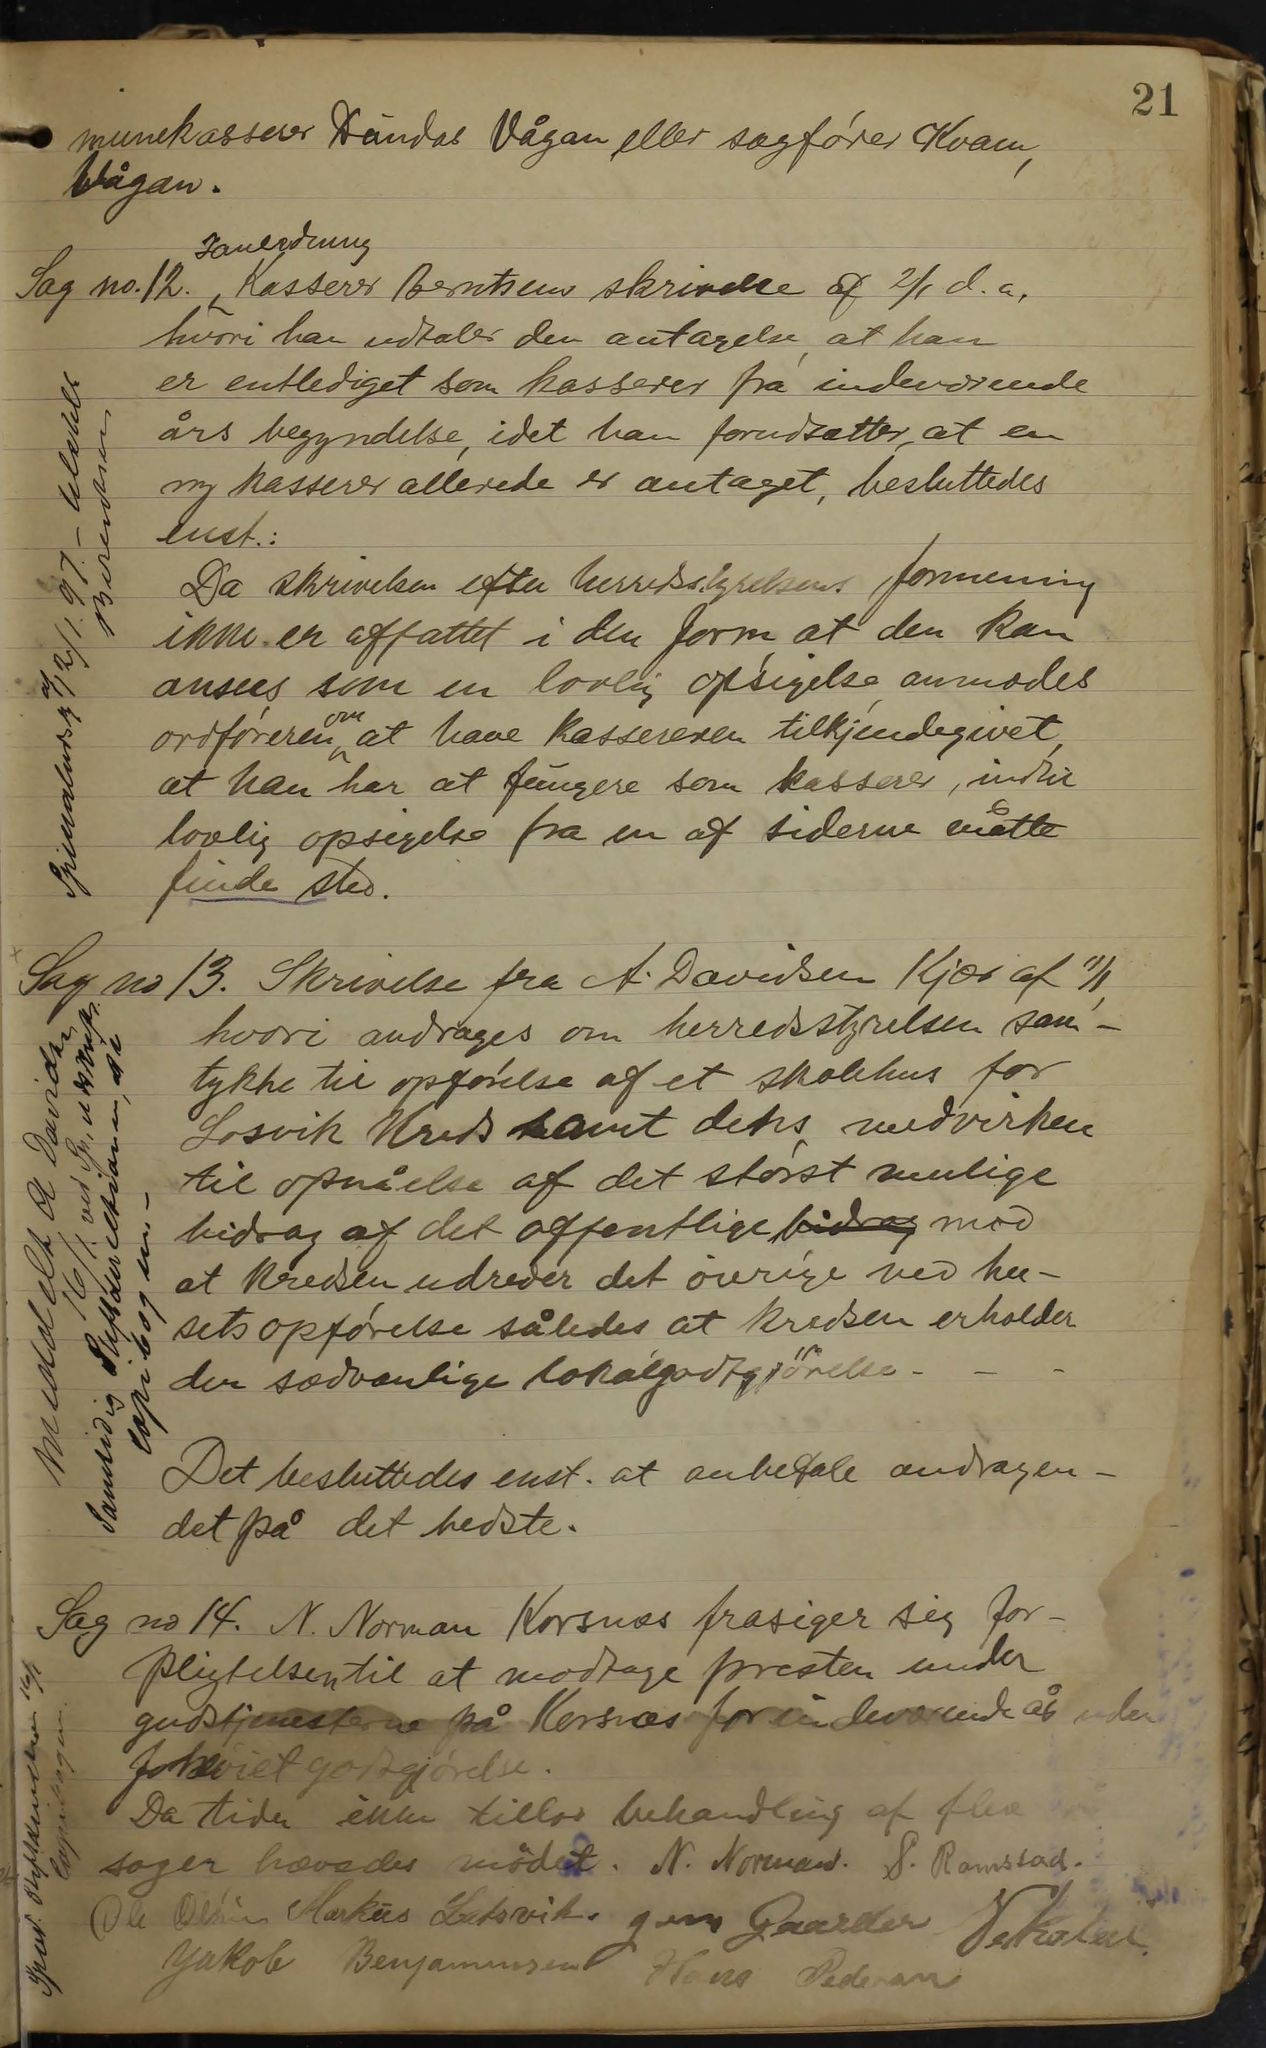 21
munekasserer Vågan eller sagfører Kvam,
Vågan.
Ianledning
Sag no. 12. Kasserer Berntsens skrivelse af 2/1 d.a.
hvori han udtaler den antagelse, at han
er entlediget som kasserer fra indeværende
års begyndelse, idet han forudsætter, at en
ny kasserer allerede er antaget, besluttedes
enst.:
Da skrivelsen efter herredsstyrelsens formening
ikke er affattet i den form, at den kan
ansees som en lovlig opsigelse anmodes
ordføreren om at have kassereren tilkjendegivet,
at han har at fungere som kasserer, indtil
lovlig opsigelse fra en af siderne måtte
finde sted.
Sag no 13. Skrivelse fra A. Davidsen Kjær af 11/1,
hvori andrages om herredsstyrelsen sam-
tykke til opførelse af et skolehus for
Losvik Kreds samt dets medvirken
til opnåelse af det størst mulige
bidrag af det offentlige bidrag mod
at kredsen udreder det øvrige ved hu-
sets opførelse således at kredsen erholder
den sædvanlige lokalgodtgjørelse - - -
Det besluttedes enst. at anbefale andragen-
det på det bedste.
Sag no 14. N. Norman Korsnæs frasiger sig for-
pligtelsen til at modtage presten under
gudstjenesterne på Korsnæs for indeværende år uden
forhøiet godtgjørelse.
Da tiden ikke tillod behandling af flere
sager hævedes mødet. N. Norman. P. Ramstad.
Ole Olsen Markus Leisvik. Jens Gaarder
Jakob Benjaminsen Hans Pedersen
af 12/1 97. – 
Berentsen
Meddelt A Davidsen
16/1 ved Pr. udskrift
Samtidig
kopibog
16/1
kopibogen